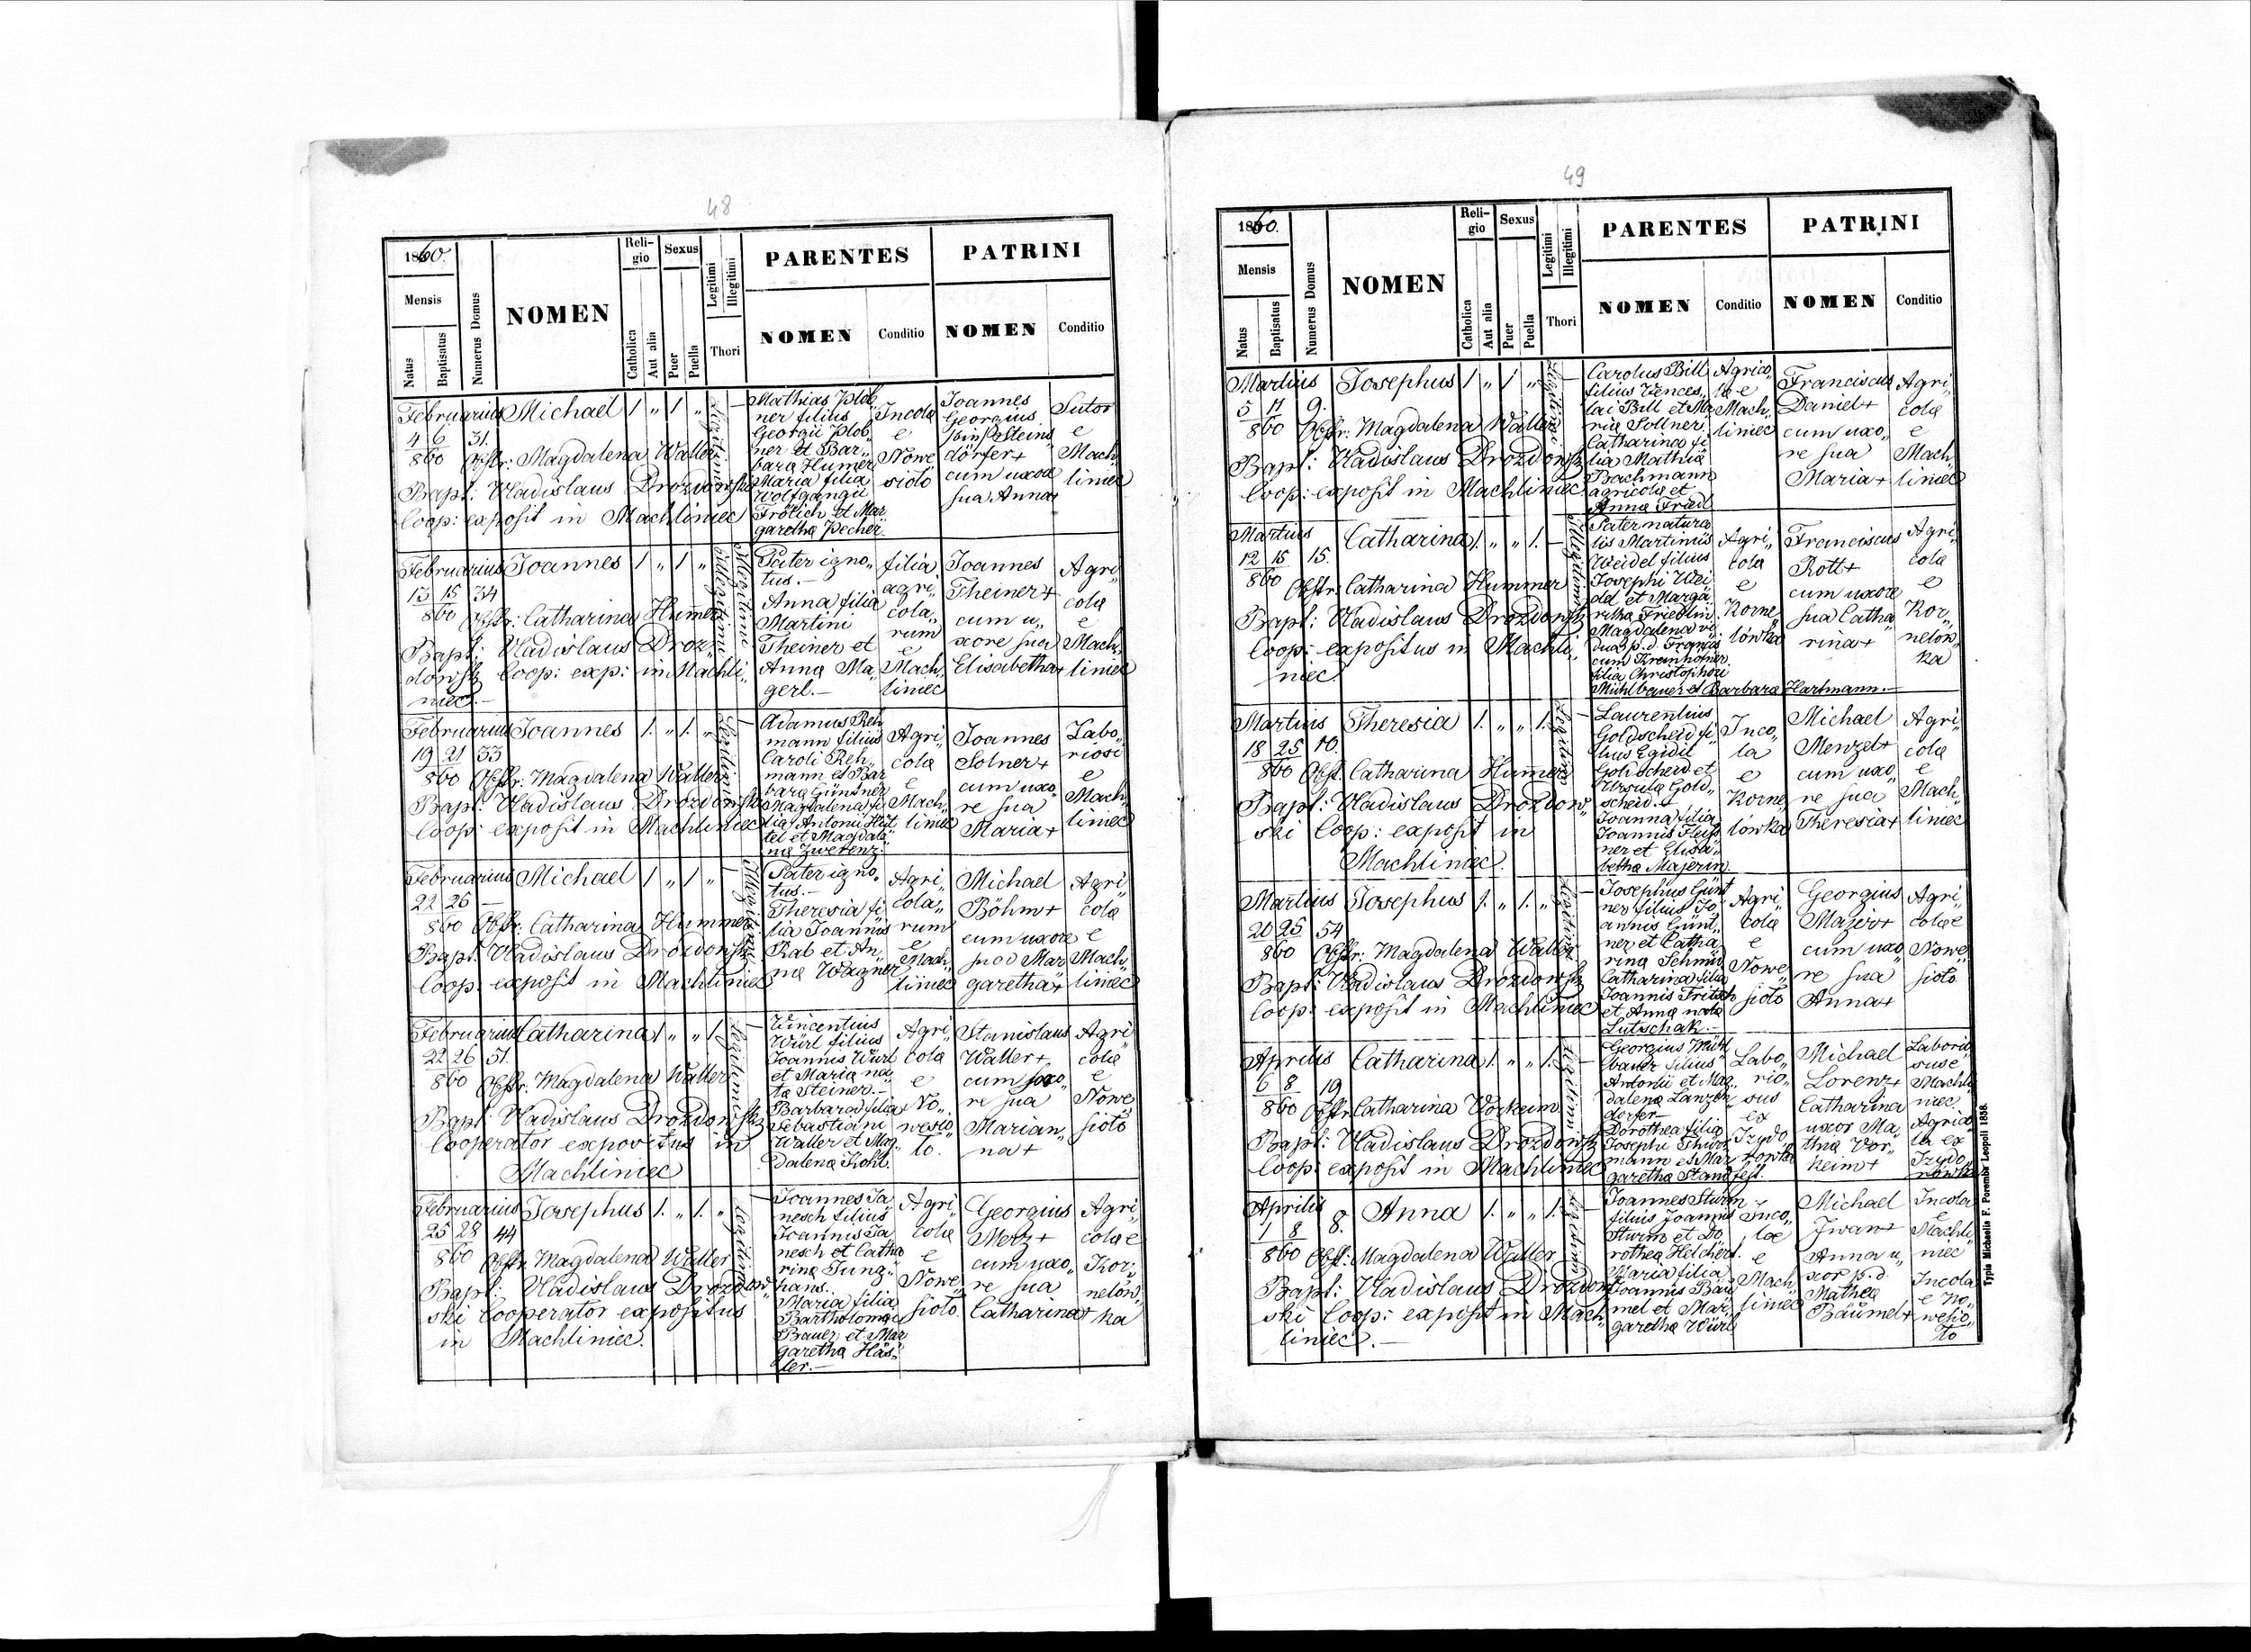 48
1860.
Mensis
Natus
Baptisatus
Numerus Domus
NOMEN
Reli-
gio
Catholica
Aut alia
Sexus
Puer
Puella
Legitimi
Illegitimi
Thori
PARENTES
NOMEN
Conditio
PATRINI
NOMEN
Conditio
Februarius Michael 1 „ 1 „ Legitimi
4 6 31.
860 Obstr: Magdalena Waller
Bapt: Vladislaus Drozdowski
Coop: exposit in Machliniec
Mathias Plob„
ner filius
Georgii Plob„
ner et Bar„
bara Humer
Maria filia
Wolfgangii
Frölich et Mar
garetha Pecher.
Incola
e
Nowe
sioło
Joannes
Georgius
Steins
dörfer+
cum uxore
sua Anna+
Sutor
e
Mach„
liniec
Februarius Joannes 1 „ 1 „ Illegitimi
13 15 34
860 Obstr: Catharina Humer
Bapt: Vladislaus Droz„
dowski Coop: exp: in Machli„
niec.—
Pater igno„
tus.—
Anna filia
Martini
Theiner et
Anna Ma„
gerl.—
filia
agri„
cola„
rum
e
Mach„
liniec
Joannes
Theiner+
cum u„
xore sua
Elisabetha+
Agri„
cola
e
Mach„
liniec
Februarius Joannes 1. „ 1. „ Legitimi
19 21 33
860 Obstr: Magdalena Waller
Bapt: Vladislaus Drozdowski
Coop: exposit in Machliniec
Adamus Reh
mann filius
Caroli Reh„
mann et Bar
bara Güntner
Magdalena fi
lia Antonii Hüt
tel et Magdale„
na Zwerenz.
Agri„
cola
e
Mach„
liniec
Joannes
Solner+
cum uxo„
re sua
Maria+
Labo„
riosi
e
Mach„
liniec
Februarius Michael 1 „ 1 „ Illegitimi
22 26 —
860 Obstr: Catharina Hummer
Bapt: Vladislaus Drozdowski
Coop: exposit in Machliniec
Pater igno„
tus.—
Theresia fi
lia Joannis
Rab et An„
na Wagner
Agri„
cola„
rum
e
Mach„
liniec
Michael
Böhm+
cum uxore
sua Mar
garetha+
Agri„
cola
e
Mach„
liniec
Februarius Catharina 1 „ „ 1. Legitimi
22 26 51.
860 Obstr: Magdalena Waller
Bapt: Vladislaus Drozdowski
Cooperator expositus in
Machliniec
Vincentius
Würl filius
Joannis Würl
et Maria na„
ta Steiner.—
Barbara filia
Sebastiani
Waller et Mag„
dalena Kohl.
Agri„
cola
e
No„
wesio„
ło.
Stanislaus
Waller+
cum uxo„
re sua
Marian„
na+
Agri„
cola
e
Nowe
sioło
Februarius Josephus 1. „ 1. „ Legitimi
25 28 44
860 Obstr: Magdalena Waller
Bapt: Vladislaus Drozdow„
ski Cooperator expositus
in Machliniec.
Joannes Ja„
nesch filius
Joannis Ja„
nesch et Catha
rina Jung„
hans.
Maria filia
Bartholomaei
Bauer et Mar
garetha Häs„
ler.—
Agri„
cola
e
Nowe„
sioło.
Georgius
Merz+
cum uxo„
re sua
Catharina+
Agri„
cola e
Kor„
nelów„
ka
49
1860.
Mensis
Natus
Baptisatus
Numerus Domus
NOMEN
Reli-
gio
Catholica
Aut alia
Sexus
Puer
Puella
Legitimi
Illegitimi
Thori
PARENTES
NOMEN
Conditio
PATRINI
NOMEN
Conditio
Martius Josephus 1 „ 1 „ Legitimi
5 11 9.
860 Obstr: Magdalena Waller
Bapt: Vladislaus Drozdowski
Coop: exposit in Machliniec
Carolus Bill
filius Vences„
lai Bill et Ma
ria Sollner.
Catharina fi
lia Mathiä
Bachmann
agricola et
Anna Friedl
Agrico„
la e
Mach„
liniec
Franciscus
Daniel+
cum uxo„
re sua
Maria+
Agri„
cola
e
Mach„
liniec
Martius Catharina 1. „ „ 1. — Illegitimi
12 15 15.
860 Obstr: Catharina Hummer
Bapt: Vladislaus Drozdowski
Coop: expositus in Machli„
niec
Pater natura
lis Martinus
Weidel filius
Josephi Wei
del et Marga„
retha Friedlin.
Magdalena vi
dua p. d. Francis
cum Kreinhofner
filia Christophori
Mühlbauer et Barbara Hartmann.—
Agri„
cola
e
Korne„
lówka
Franciscus
Rott+
cum uxore
sua Catha„
rina+
Agri„
cola
e
Kor„
nelów„
ka
Martius Theresia 1. „ „ 1. Legitimi
18 25 10.
860 Obst. Catharina Humer
Bapt: Vladislaus Drozdow„
ski Coop: exposit in
Machliniec.
Laurentius
Goldscheid fi„
lius Egidii
Goldscheid et
Ursula Gold„
scheid.
Joanna filia
Joannis Fleiß
ner et Elisa„
betha Majerin
Inco„
la
e
Korne„
lówka
Michael
Menzel+
cum uxo„
re sua
Theresia+
Agri„
cola
e
Mach„
liniec
Martius Josephus 1. „ 1. „ Legitimi
20 25 54
860 Obstr: Magdalena Waller
Bapt: Vladislaus Drozdowski
Coop: exposit in Machliniec
Josephus Günt
ner filius Jo„
annis Günt„
ner et Catha„
rina Schmid
Catharina filia
Joannis Fritsch
et Anna nata
Lutschak.—
Agri„
cola
e
Nowe„
sioło
Georgius
Major+
cum uxo„
re sua
Anna+
Agri„
cola e
Nowe„
sioło
Aprilis Catharina 1. „ „ 1. Legitimi
6 8 19
860 Obstr: Catharina Vorkeim
Bapt: Vladislaus Drozdowski
Coop: exposit in Machliniec
Georgius Mühl
bauer filius
Antonii et Mag„
dalena Lanzen
dorfer—
Dorothea filia
Josephi Thür„
mann et Mar
garetha Standfest.
Labo„
rio„
sus
ex
Izydo„
rówka
Michael
Lorenz+
Catharina
uxor Ma„
thia Vor„
keim+
Laborio„
sus e
Machli„
niec
Agrico„
la ex
Izydo„
rówka
Aprilis Anna 1. „ „ 1. Legitimi
1 8 8.
860 Obst: Magdalena Waller
Bapt: Vladislaus Drozdow
ski Coop: exposit in Mach„
liniec.—
Joannes Sturm
filius Joannis
Sturm et Do„
rothea Helchert.
Maria filia
Joannis Bäu
mel et Mar„
garetha Würl
Inco„
lae
e
Mach„
liniec
Michael
Iwan+
Anna u„
xor p. d.
Mathea
Bäumel+
Incola
e
Machli„
niec
Incola
e No„
wesio„
ło
Typis Michaelis F. Poremba Leopoli 1858.